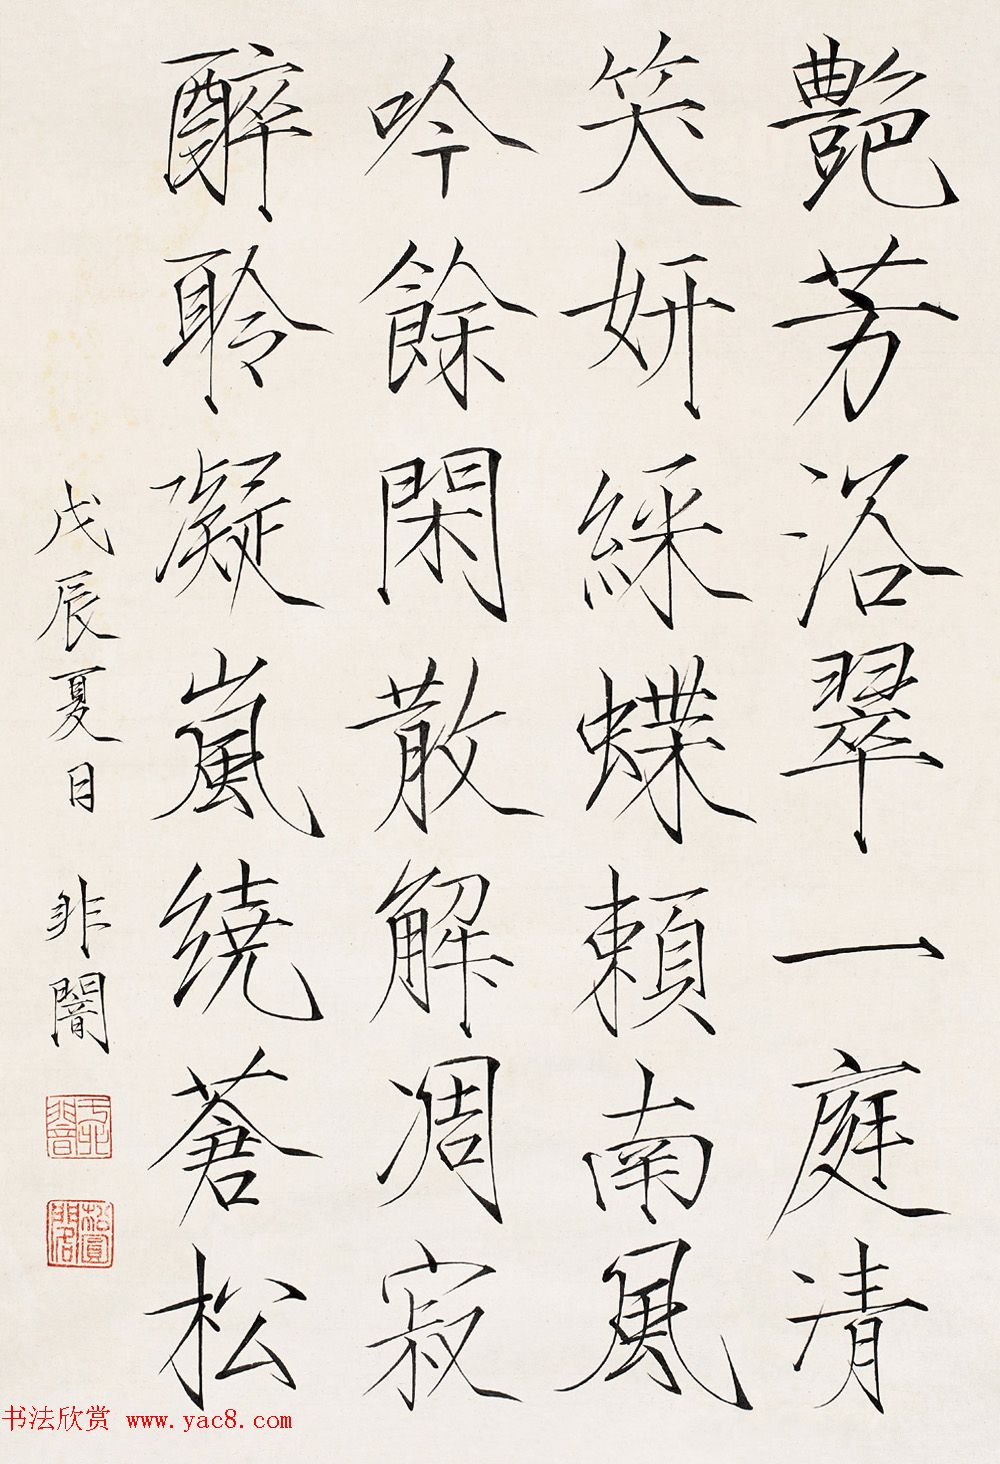 艷芳浴翠一庭清
笑妍綵蝶賴南風
吟餘閑散解凋寂
醉聆凝嵐繞蒼松
戊辰夏日 非闇
于非闇
書法欣赏 www.yac8.com